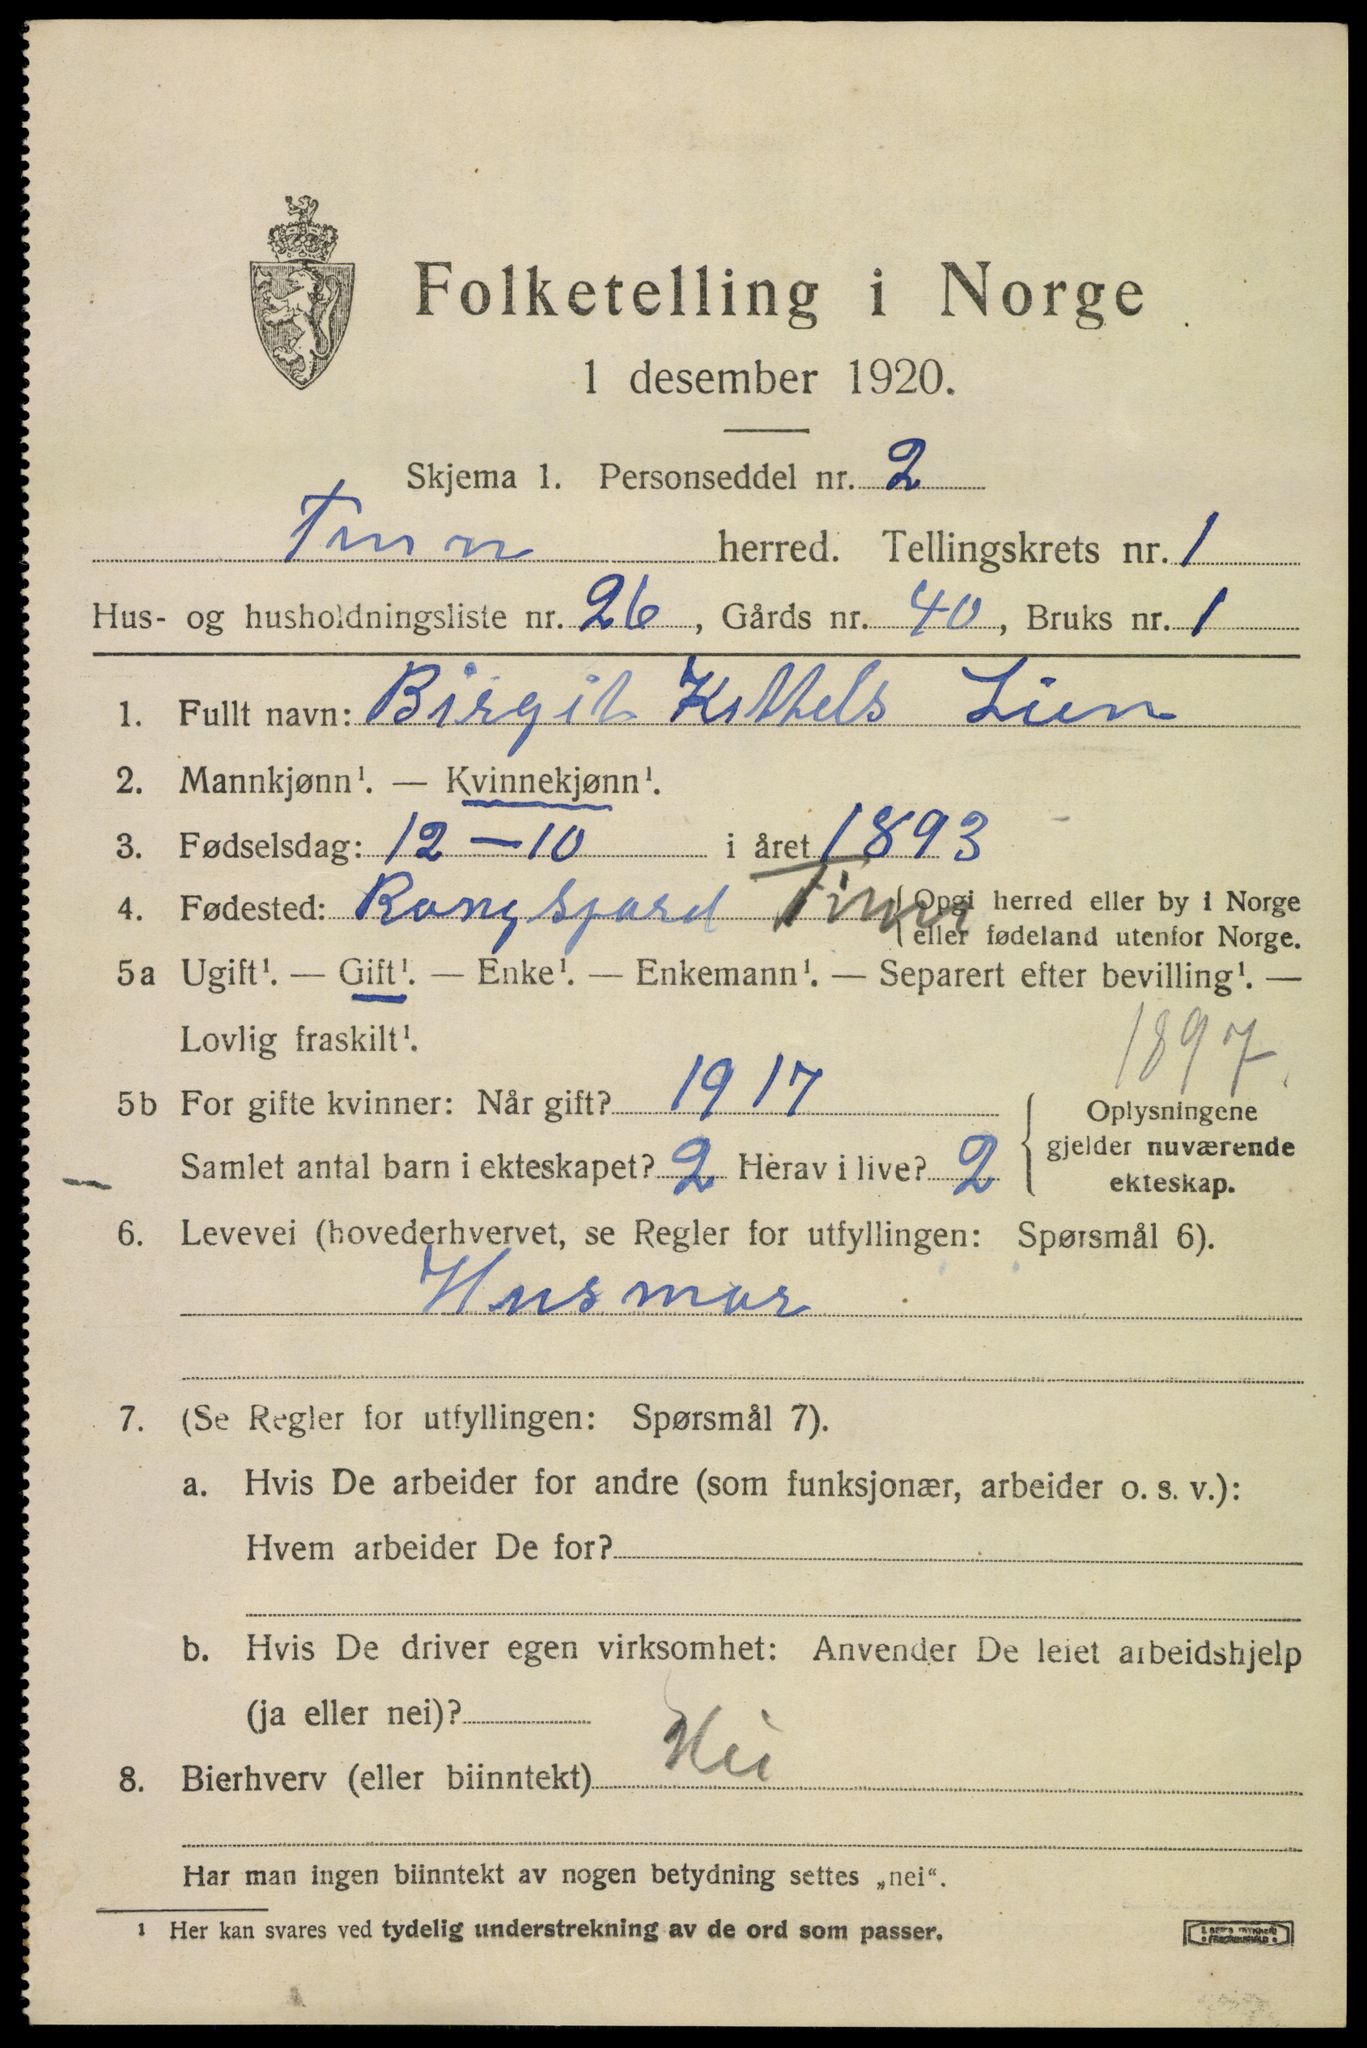 Folketelling i Norge
1 desember 1920.
Skjema 1. Personseddel nr. 2
Tinn herred. Tellingskrets nr. 1
Hus- og husholdningsliste nr. 26, Gårds nr. 40, Bruks nr. 1
1. Fullt navn: Birgit Kittels Lien
2. Mannkjønn¹. — Kvinnekjønn¹.
3. Fødselsdag: 12 – 10 i året 1893
4. Fødested: Tinn {Opgi herred eller by i Norge
eller fødeland utenfor Norge.
5a Ugift¹. — Gift¹. — Enke¹. — Enkemann¹. — Separert efter bevilling¹. —
Lovlig fraskilt¹.
1897
5b For gifte kvinner: Når gift? 1917
Samlet antal barn i ekteskapet? 2 Herav i live? 2
{Oplysningene
gjelder nuværende
ekteskap.
6. Levevei (hovederhvervet, se Regler for utfyllingen: Spørsmål 6).
Husmor
7. (Se Regler for utfyllingen: Spørsmål 7).
a. Hvis De arbeider for andre (som funksjonær, arbeider o. s. v.):
Hvem arbeider De for?
b. Hvis De driver egen virksomhet: Anvender De leiet arbeidshjelp
(ja eller nei)?
8. Bierhverv (eller biinntekt) Nei
Har man ingen biinntekt av nogen betydning settes „nei“.
¹ Her kan svares ved tydelig understrekning av de ord som passer.